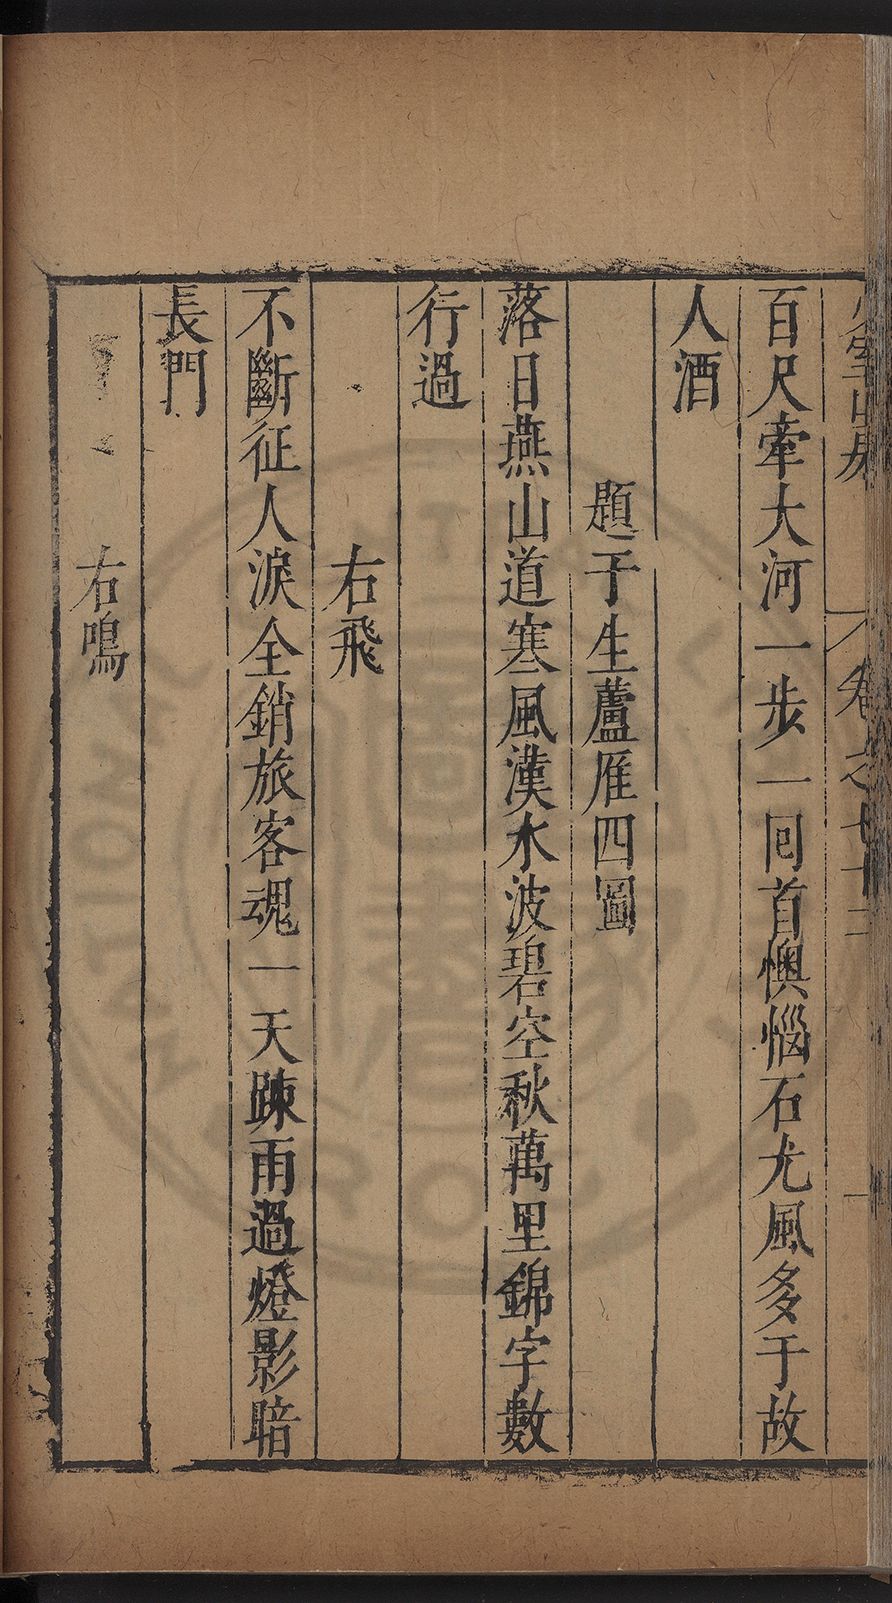 少室山房 卷之七十二 一
百尺牽大河一步一囘首懊惱石尤風多于故
人酒
題于生蘆雁四圖
落日燕山道寒風漢水波碧空秋萬里錦字數
行過
右飛
不斷征人淚全銷旅客魂一天踈雨過燈影暗
長門
右鳴